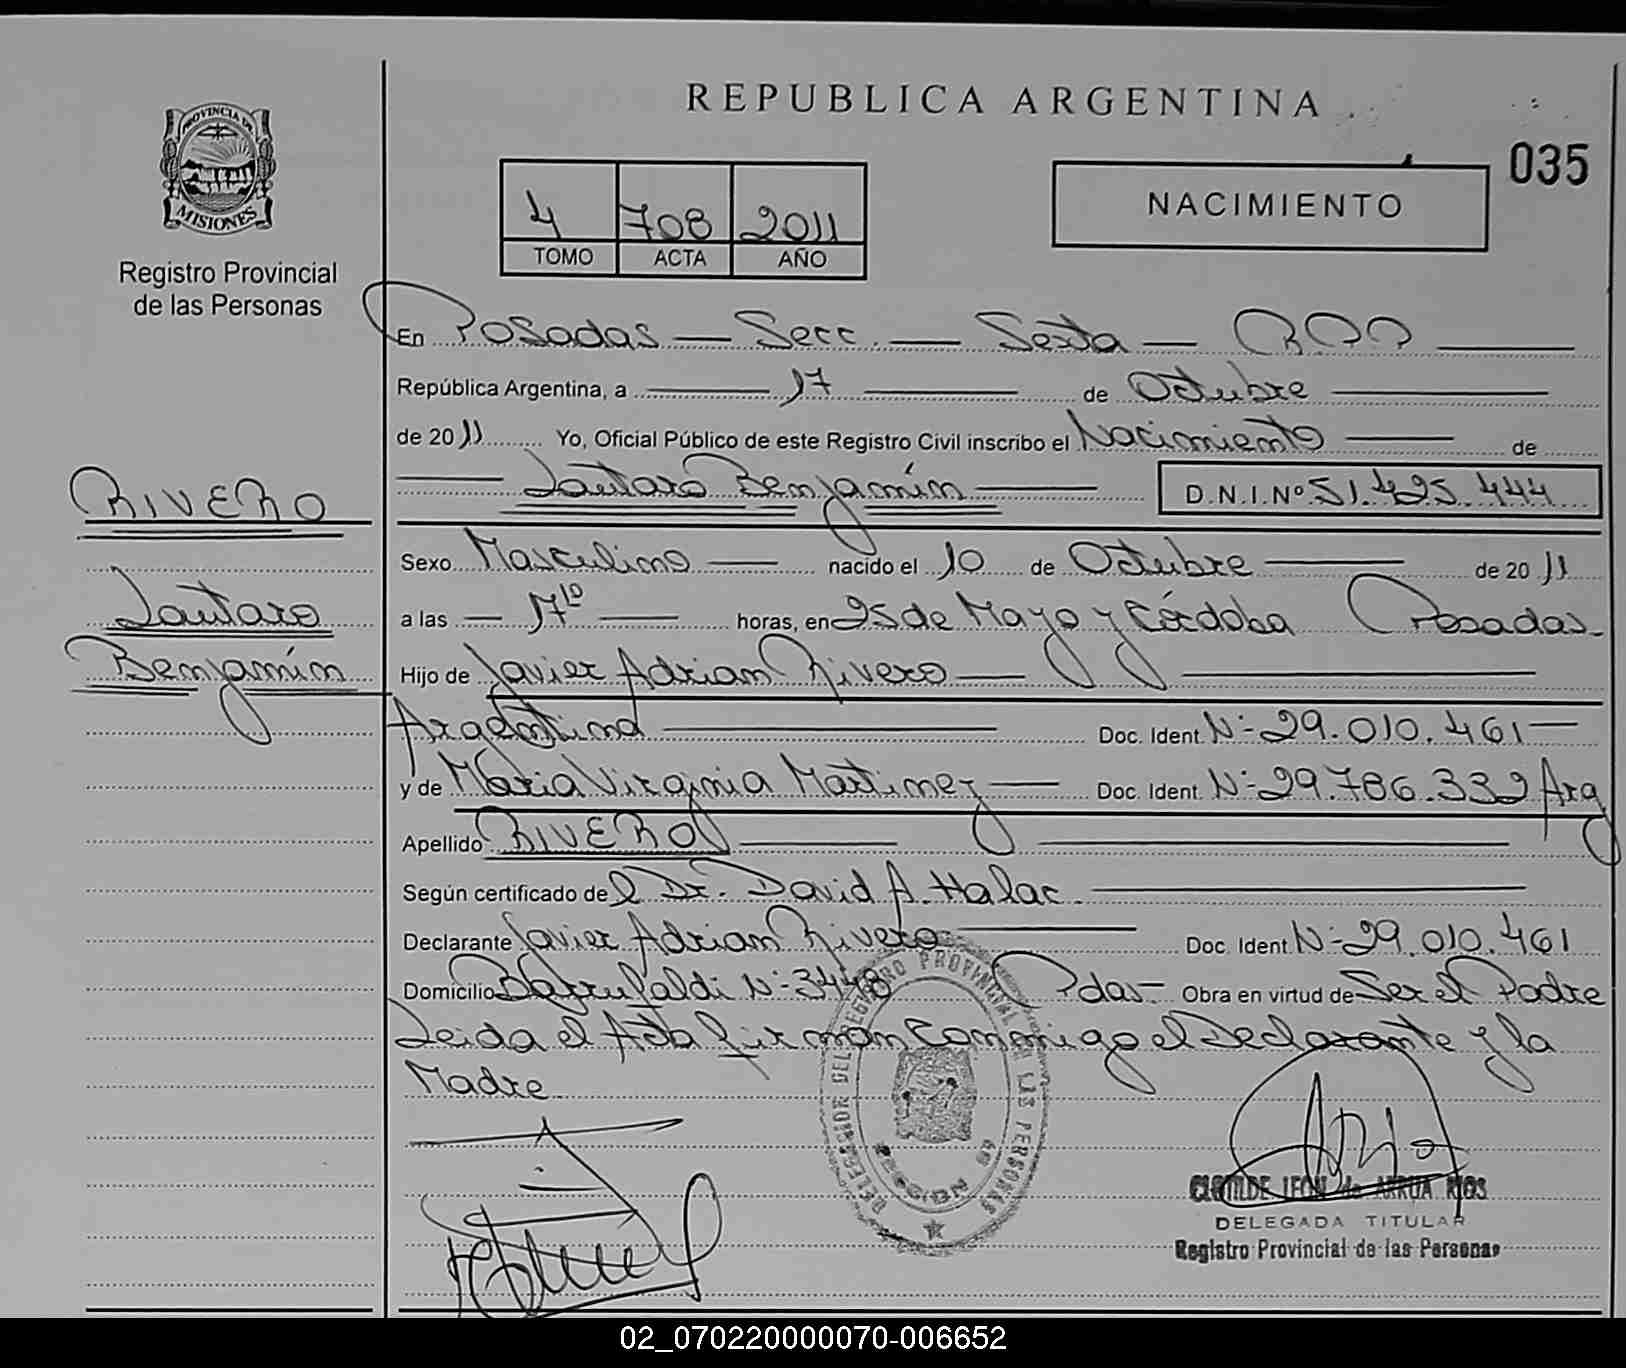 REPUBLICA ARGENTINA
035
PROVINCIA DE
MISIONES
Registro Provincial
de las Personas
4 708 2011
TOMO ACTA AÑO
NACIMIENTO
En Posadas — Secc. — Sexta —
República Argentina, a — 17 — de Octubre —
de 2011 Yo, Oficial Público de este Registro Civil inscribo el Nacimiento — de
— Lautaro Benjamín — D.N.I.Nº 51.425.444
RIVERO
Lautaro
Benjamín
Sexo Masculino — nacido el 10 de Octubre — de 2011
a las — 17 10 — horas, en 25 de Mayo y Córdoba Posadas-
Hijo de Javier Adrian Rivero —
Argentina — Doc. Ident. Nº 29.010.461 —
y de Maria Virginia Martinez — Doc. Ident. Nº 29.786.332 Arg
Apellido RIVERO —
Según certificado del Dr. David A. Halac. —
Declarante Javier Adrian Rivero — Doc. Ident. Nº 29.010.461
Domicilio Barrufaldi Nº 3448 Pdas- Obra en virtud de Ser el Padre
Leida el Acta firman Conmigo el Declarante y la
Madre
DELEGACION DEL REGISTRO PROVINCIAL DE LAS PERSONAS
REGION
CLOTILDE LEON de ARRUA RIOS
DELEGADA TITULAR
Registro Provincial de las Personas
02_070220000070-006652